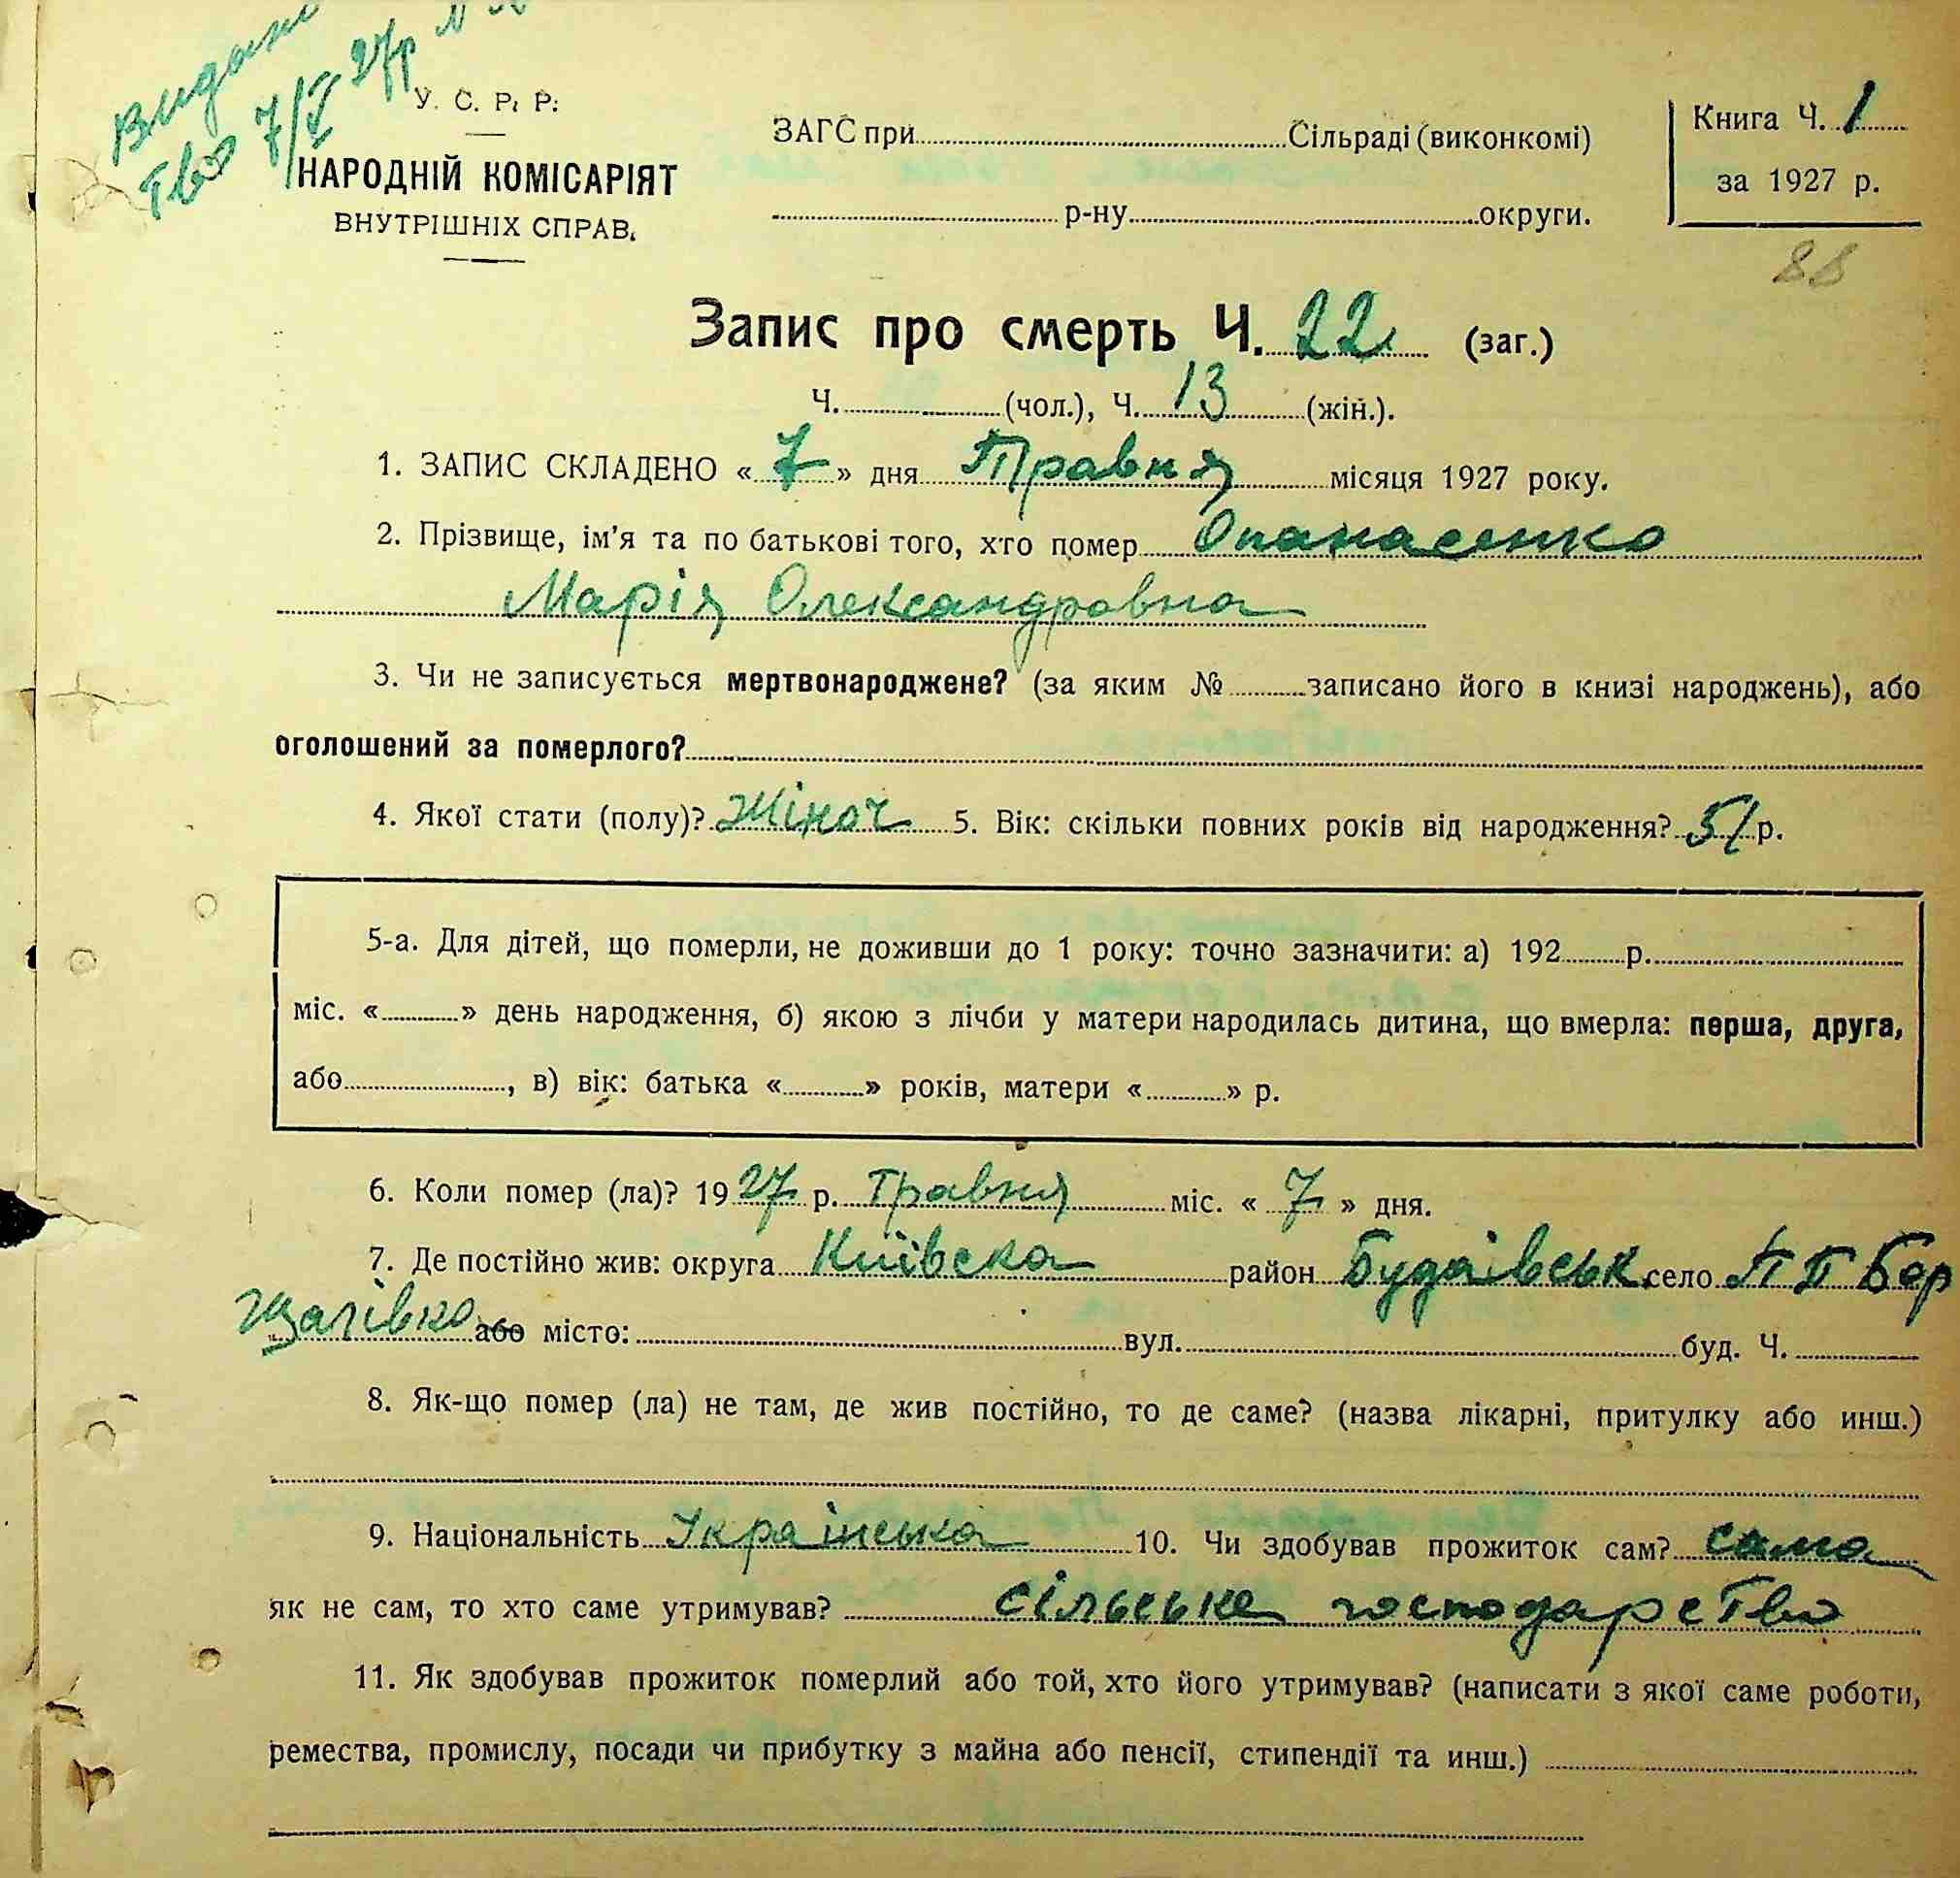 Видано
тво 7/V 27р №
У. С. Р. Р.
НАРОДНІЙ КОМІСАРІЯТ
ВНУТРІШНІХ СПРАВ.
ЗАГС при Сільраді (виконкомі)
р-ну округи.
Книга Ч. 1
за 1927 р.
88
Запис про смерть Ч. 22 (заг.)
Ч. (чол.), Ч. 13 (жін.).
1. ЗАПИС СКЛАДЕНО «7» дня Травня місяця 1927 року.
2. Прізвище, ім'я та по батькові того, хто помер Опанасенко
Марія Олександровна
3. Чи не записується мертвонароджене? (за яким № записано його в книзі народжень), або
оголошений за померлого?
4. Якої стати (полу)? Жіноч 5. Вік: скільки повних років від народження? 51 р.
5-а. Для дітей, що померли, не доживши до 1 року: точно зазначити: а) 192 р.
міс. « » день народження, б) якою з лічби у матери народилась дитина, що вмерла: перша, друга,
або , в) вік: батька « » років, матери « » р.
6. Коли помер (ла)? 1927 р. Травня міс. « 7 » дня.
7. Де постійно жив: округа Київска район Будаївськ. село ПП Бор
щагівка або місто: вул. буд. Ч.
8. Як-що помер (ла) не там, де жив постійно, то де саме? (назва лікарні, притулку або инш.)
9. Національність Українська 10. Чи здобував прожиток сам? сама
як не сам, то хто саме утримував? сільське господарство
11. Як здобував прожиток померлий або той, хто його утримував? (написати з якої саме роботи,
ремества, промислу, посади чи прибутку з майна або пенсії, стипендії та инш.)